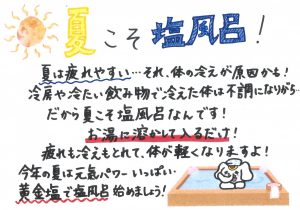 夏こそ塩風呂!
夏は疲れやすい…それ、体の冷えが原因かも!
冷房や冷たい飲み物で冷えた体は不調になりがち…
だから夏こそ塩風呂なんです!
お湯に溶かして入るだけ!
疲れも冷えもとれて、体が軽くなりますよ!
今年の夏は元気パワーいっぱい
黄金塩で塩風呂始めましょう!